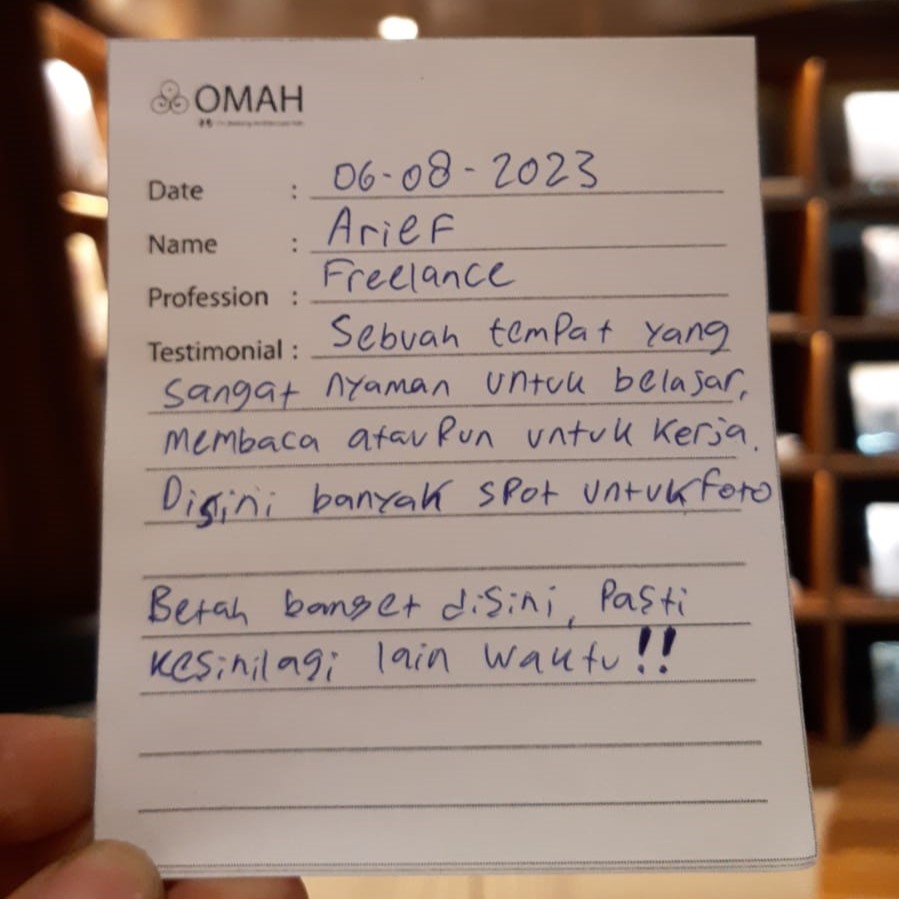 OMAH
Date : 06-08-2023
Name : Arief
Profession : Freelance
Testimonial : Sebuah tempat yang
sangat nyaman untuk belajar,
membaca ataupun untuk kerja.
Disini banyak spot untuk foto
Betah banget disini, Pasti
kesinilagi lain waktu!!